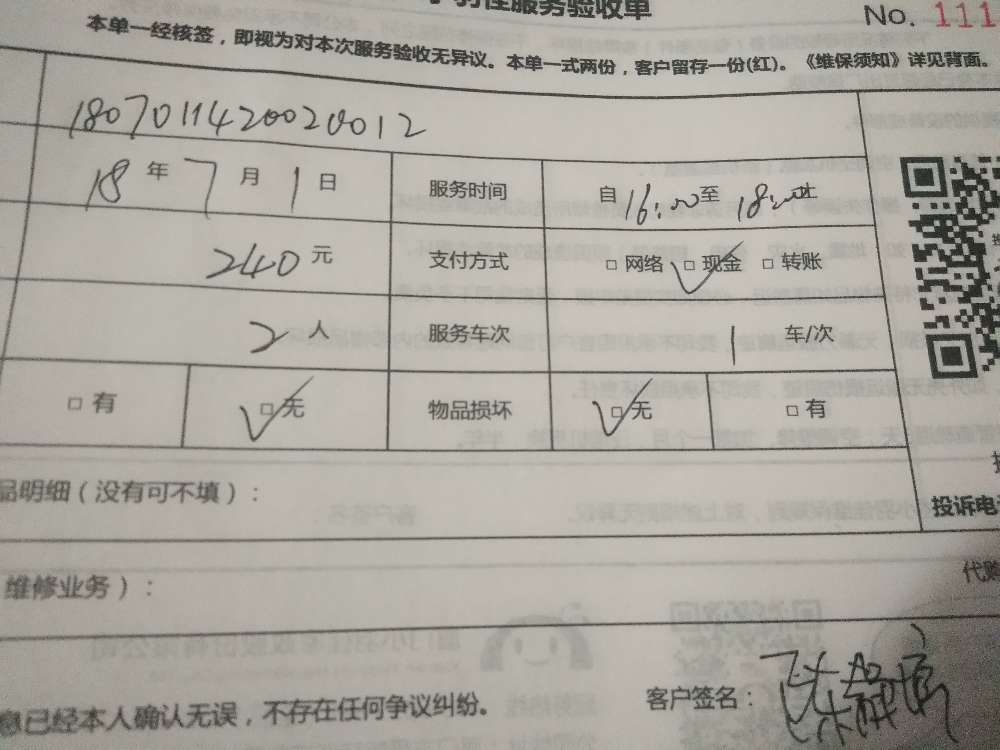 性服务验收单
No. 111
本单一经核签，即视为对本次服务验收无异议。本单一式两份，客户留存一份(红)。《维保须知》详见背面。
1807011420020012
18 年 7 月 1 日 服务时间 自 16:00 至 18:00 止
240 元 支付方式 □ 网络 □ 现金 □ 转账
2 人 服务车次 1 车/次
□ 有 □ 无 物品损坏 □ 无 □ 有
品明细（没有可不填）：
投诉电
维修业务）：
代购
息已经本人确认无误，不存在任何争议纠纷。
客户签名：